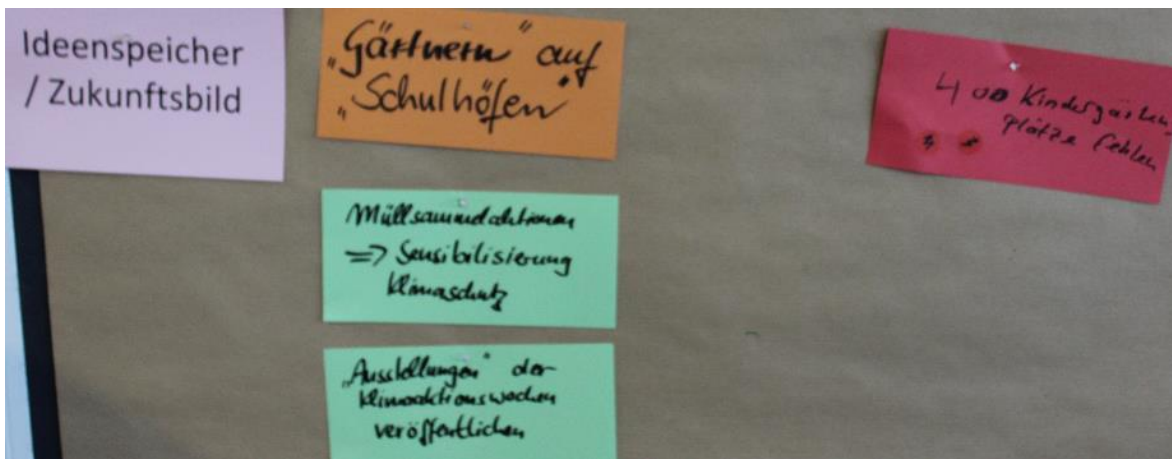 Ideenspeicher
/ Zukunftsbild
„Gärtnern“ auf
„Schulhöfen“
Müllsammelaktionen
=> Sensibilisierung
Klimaschutz
„Ausstellungen“ der
Klimaaktionswochen
veröffentlichen
400 Kindergarten
plätze fehlen